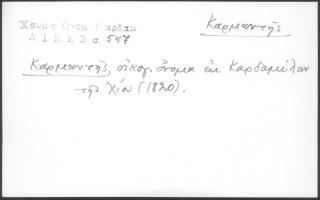 Χουμη Ονομ Καρδαμ
Δ Ι Ε Ε 3 σ. 547
Καρμαντῆς
Καρμαντῆς, οἰκογ. ὄνομα ἐκ Καρδαμύλων
τῆς Χίου (1820).